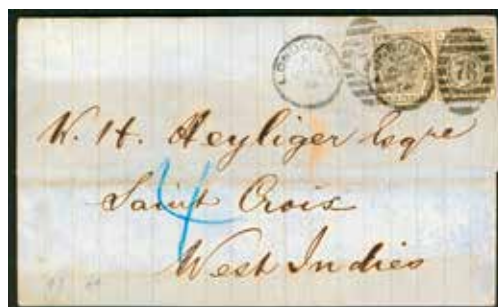 LONDON
78
W. H. Heyliger Esqre
Saint Croix
West Indies
4